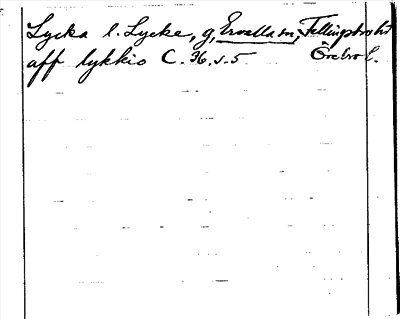 Lycka l. Lycke, g, Ervalla sn, Fellingsbro hd
aff lykkio C. 36, s. 5 Örebro l.